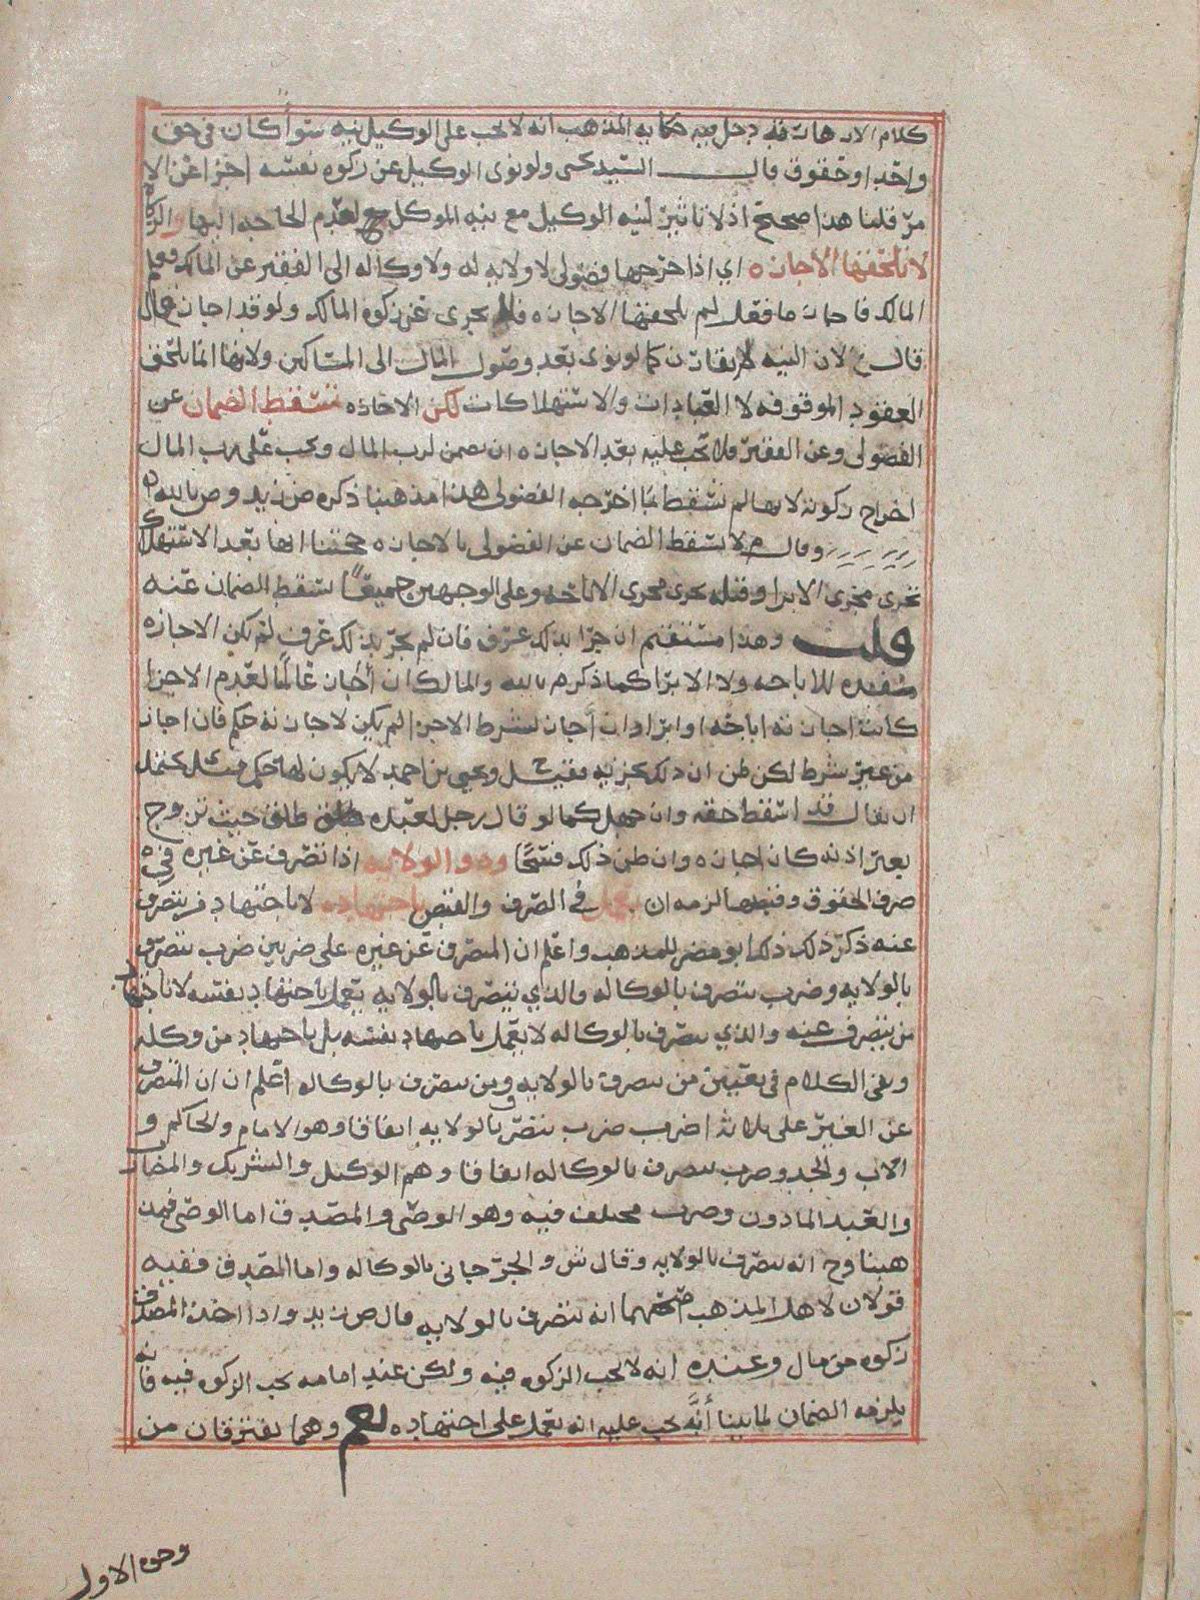 كلام الازهار فيه دخل فيه حكايه المذهب انه لا يجب على الوكيل نيه سوآ كان في حق
واحد او حقوق قال السيد يحيى ولو نوى الوكيل عن زكوه نفسه اجزا عن الا
مر قلنا هذا صحيح اذ لا تاثير لنيه الوكيل مع نيه الموكل لعدم الحاجه اليها
لا تلحقها الاجازه اي اذا اخرجها فضولى لا ولايه له ولا وكاله الى الفقير عن المالك فعلم
المالك فاجاز ما فعل لم يلحقها الاجازه فلا يجزى عن زكوه المالك ولو قد اجاز
قال لان النيه لم تقارن كما لو نوى بعد وصول المال الى المساكين ولانها انما تلحق
العقود الموقوفه لا العبادات والاستهلاكات لكن الاجازه تسقط الضمان عن
الفضولى وعن الفقير فلا يجب عليه بعد الاجازه ان يضمن لرب المال ويجب على رب المال
اخراج زكوته لانها لم تسقط بما اخرجه الفضولى هذا مذهبنا ذكره ض زيد و ص بالله
وقال م لا يسقط الضمان عن الفضولى بالاجازه حجتنا انها بعد الاستهلاك
تجرى مجرى الابرا وقيل يجرى مجرى الاباحه وعلى الوجهين جميعًا يسقط الضمان عنه
قلت وهذا مستقيم ان جرا بذلك عرف فان لم يجر بذلك عرف لم تكن الاجازه
مفيده للاباحه ولا الابرا كما ذكر م بالله والمالك ان اجاز عالمًا لعدم الاجزا
كانت اجازته اباحه او ابرا وان اجاز بشرط الاجزا لم يكن لاجازته حكم فان اجاز
من غير شرط لكن ظن ان ذلك يجزيه فقيل ويحيى بن احمد لا يكون لها حكم يحتمل
ان يقال قد اسقط حقه وان جهل كما لو قال رجل لعبده طلق حيث تزوج
بغير اذنه كان اجازه وان ظن ذلك فسخًا وذو الولايه اذا تصرف عن غيره في
صرف الحقوق وقبضها لزمه ان يعمل في الصرف والقبض باجتهاده لا باجتهاد من يتصرف
عنه ذكر ذلك ابو مضر للمذهب واعلم ان المتصرف عن غيره على ضربين ضرب يتصرف
بالولايه وضرب يتصرف بالوكاله والذي يتصرف بالولايه يعمل باجتهاد نفسه لا باجتهاد
من يتصرف عنه والذي يتصرف بالوكاله لا يعمل باجتهاد نفسه بل باجتهاد من وكله
وبقي الكلام في تعيين من يتصرف بالولايه ومن يتصرف بالوكاله اعلم ان المتصرف
عن الغير على ثلاثه اضرب ضرب يتصرف بالولايه اتفاقا وهو الامام والحاكم و
الاب والجد وضرب يتصرف بالوكاله اتفاقا وهم الوكيل والشريك والمضارب
والعبد الماذون وضرب مختلف فيه وهو الوصى والمصدق اما الوصى فمذ
هبنا وح انه يتصرف بالولايه وقال ش والجرجانى بالوكاله واما المصدق ففيه
قولان لاهل المذهب صححهما انه يتصرف بالولايه قال ض زيد واذا اخذ المصدق
زكوه من مال وعنده انه لا يجب الزكوه فيه ولكن عند امامه يجب الزكوه فيه فانه
يلزمه الضمان لما بينا أنَّه يجب عليه انه يعمل على اجتهاده نعم وهما يفترقان من
وجوه الاول